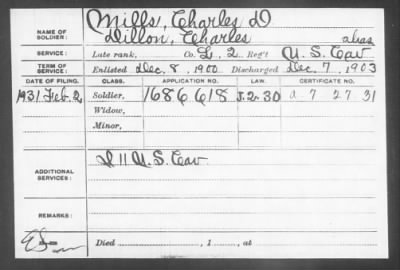 Mills, Charles D
NAME OF SOLDIER: Dillon, Charles alias
SERVICE: Late rank, Co. L, 2 Reg't U. S. Cav
TERM OF SERVICE: Enlisted Dec. 8, 1900 Discharged Dec. 7, 1903
DATE OF FILING. CLASS. APPLICATION NO. LAW. CERTIFICATE NO.
1931 Feb. 2 Soldier, 1686618 J.2.30 a 7 27 31
Widow,
Minor,
ADDITIONAL SERVICES: I 11 U.S. Cav
REMARKS:
Died , 1 , at